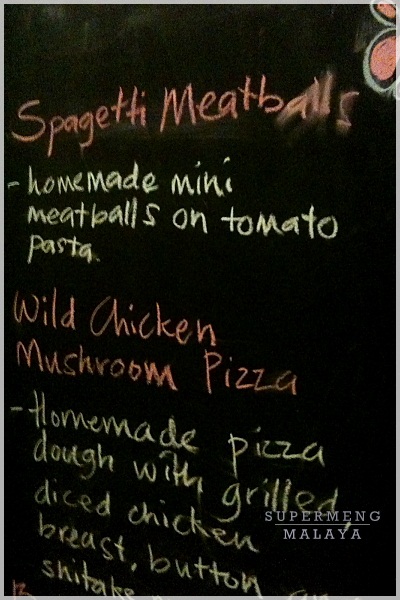 Spagetti Meatballs
- homemade mini
meatballs on tomato
pasta.
Wild Chicken
Mushroom Pizza
- Homemade pizza
dough with grilled
diced chicken
breast, button
shitake
SUPERMENG
MALAYA